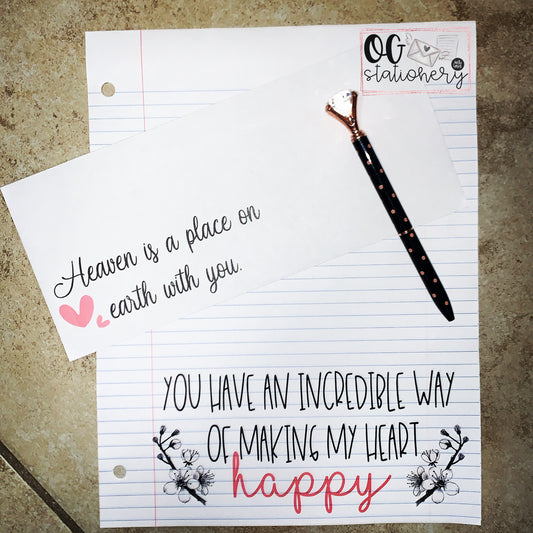 OG
stationery
Heaven is a place on
earth with you.
YOU HAVE AN INCREDIBLE WAY
OF MAKING MY HEART
happy